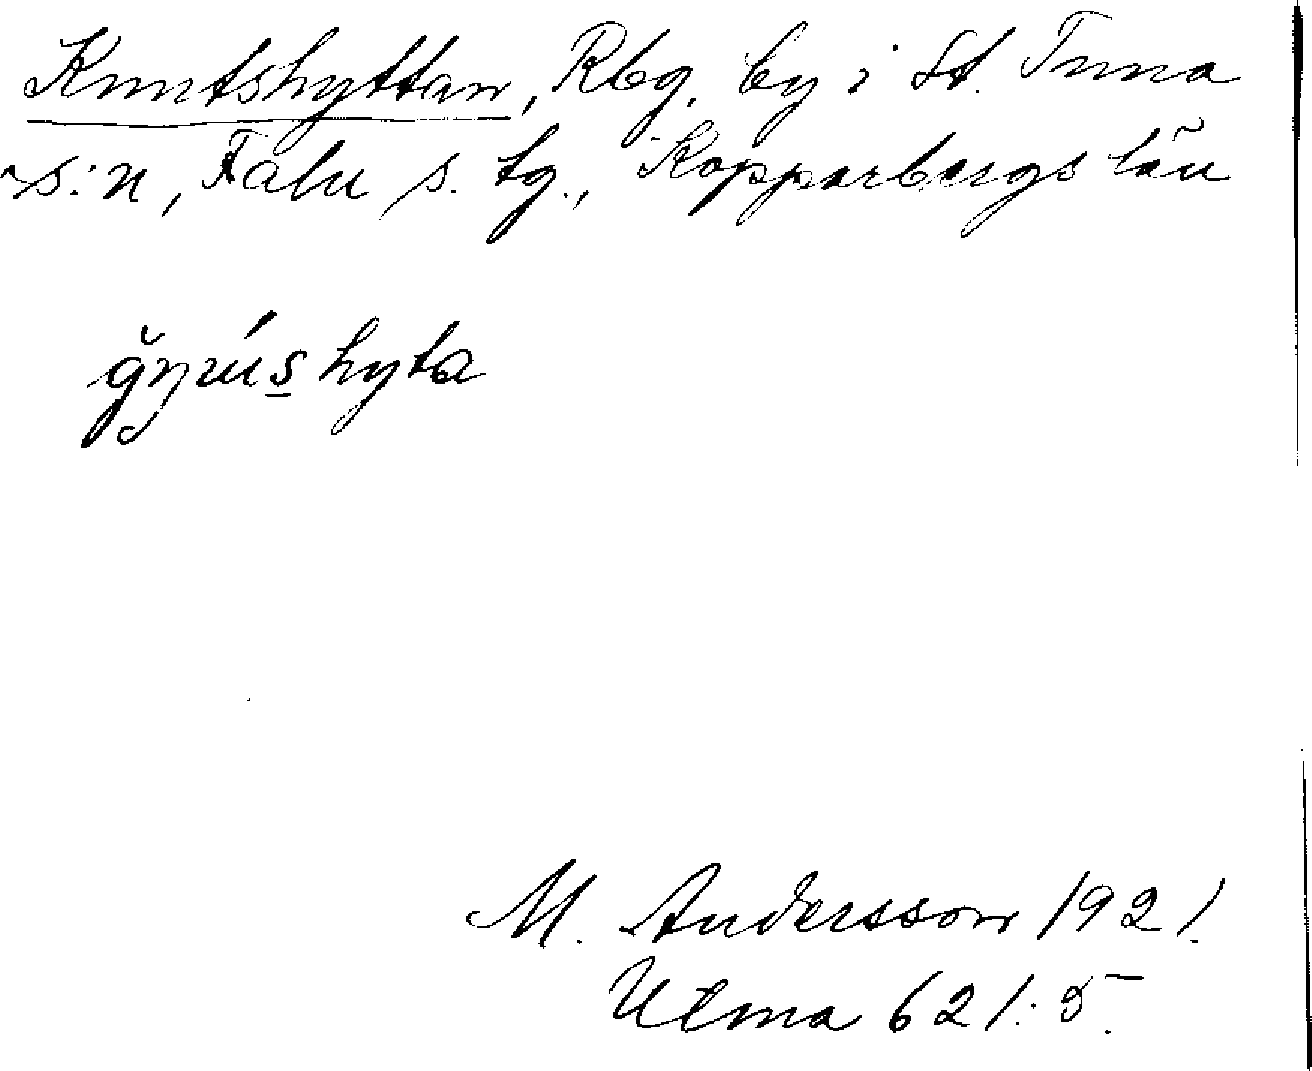 Knutshyttan, Rbg, by i St. Tuna
s:n, Falu s. tg., Kopparbergs län
M. Andersson 1921.
Ulma 621:5.